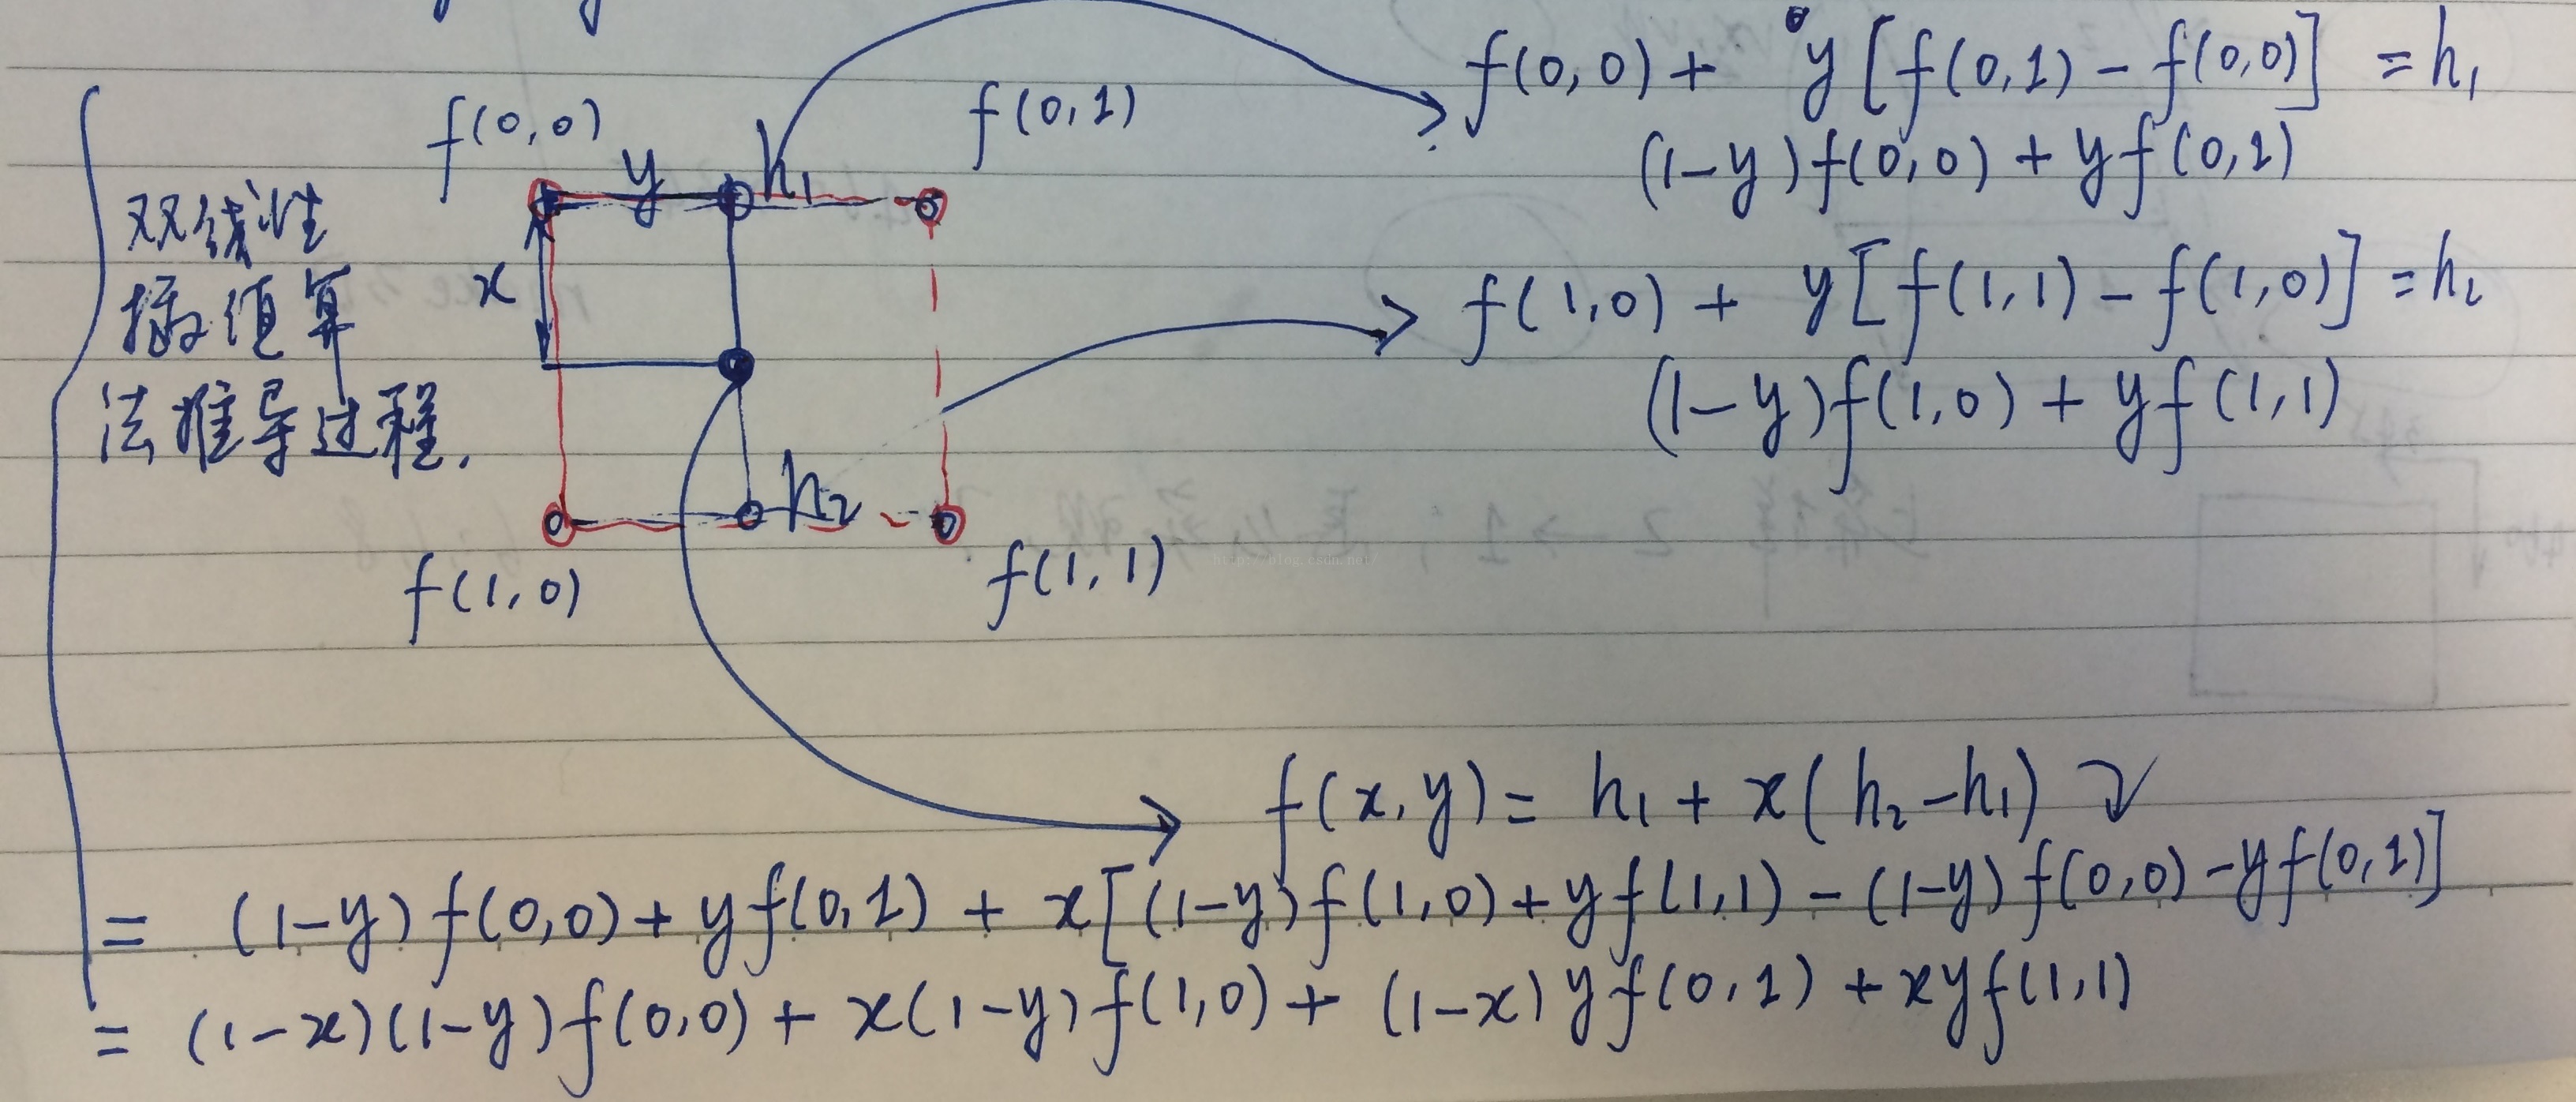 双线性
插值算
法推导过程.
f(0,0)
y
h₁
f(0,1)
x
h₂
f(1,0)
f(1,1)
f(0,0) + y[f(0,1) − f(0,0)] = h₁
(1−y)f(0,0) + yf(0,1)
f(1,0) + y[f(1,1) − f(1,0)] = h₂
(1−y)f(1,0) + yf(1,1)
http://blog.csdn.net/
f(x,y) = h₁ + x(h₂−h₁)
= (1−y)f(0,0) + yf(0,1) + x[(1−y)f(1,0) + yf(1,1) − (1−y)f(0,0) − yf(0,1)]
= (1−x)(1−y)f(0,0) + x(1−y)f(1,0) + (1−x)yf(0,1) + xyf(1,1)